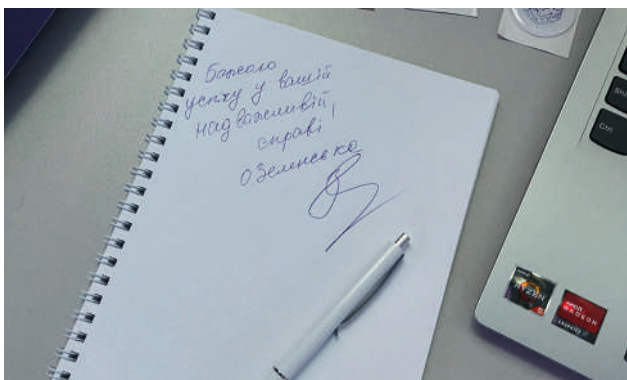 Бажаю
успіху у вашій
надважливій
справі
О Зеленська
Shift
Ctrl
RYZEN
5
AMD
RADEON
Graphics